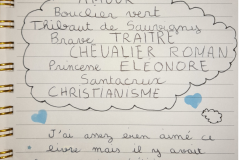 AMOUR
Bouclier vert
Thibaut de Sauvigny
Brave TRAÎTRE
CHEVALIER ROMAN
Princesse ELEONORE
Santacrux
CHRISTIANISME
J'ai assez bien aimé ce
livre mais il y avait